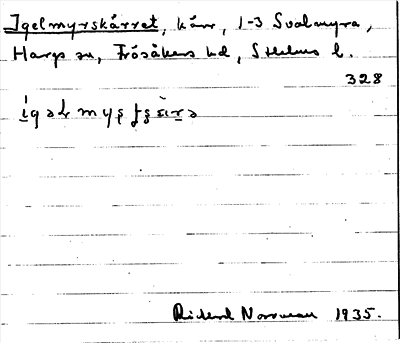 Igelmyrskärret, kärr, 1-3 Svalmyra,
Hargs sn, Frösåkers hd, Sthlms l.
328
Rickard Norrman 1935.